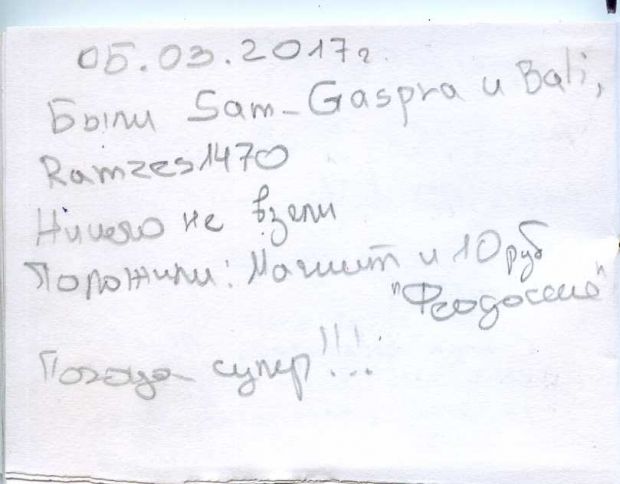 05.03.2017г
Были Sam-Gaspra и Bali,
Ramzes1470
Ничего не взяли
Положили: Магнит и 10 руб
"Феодосия"
Погода супер!!!